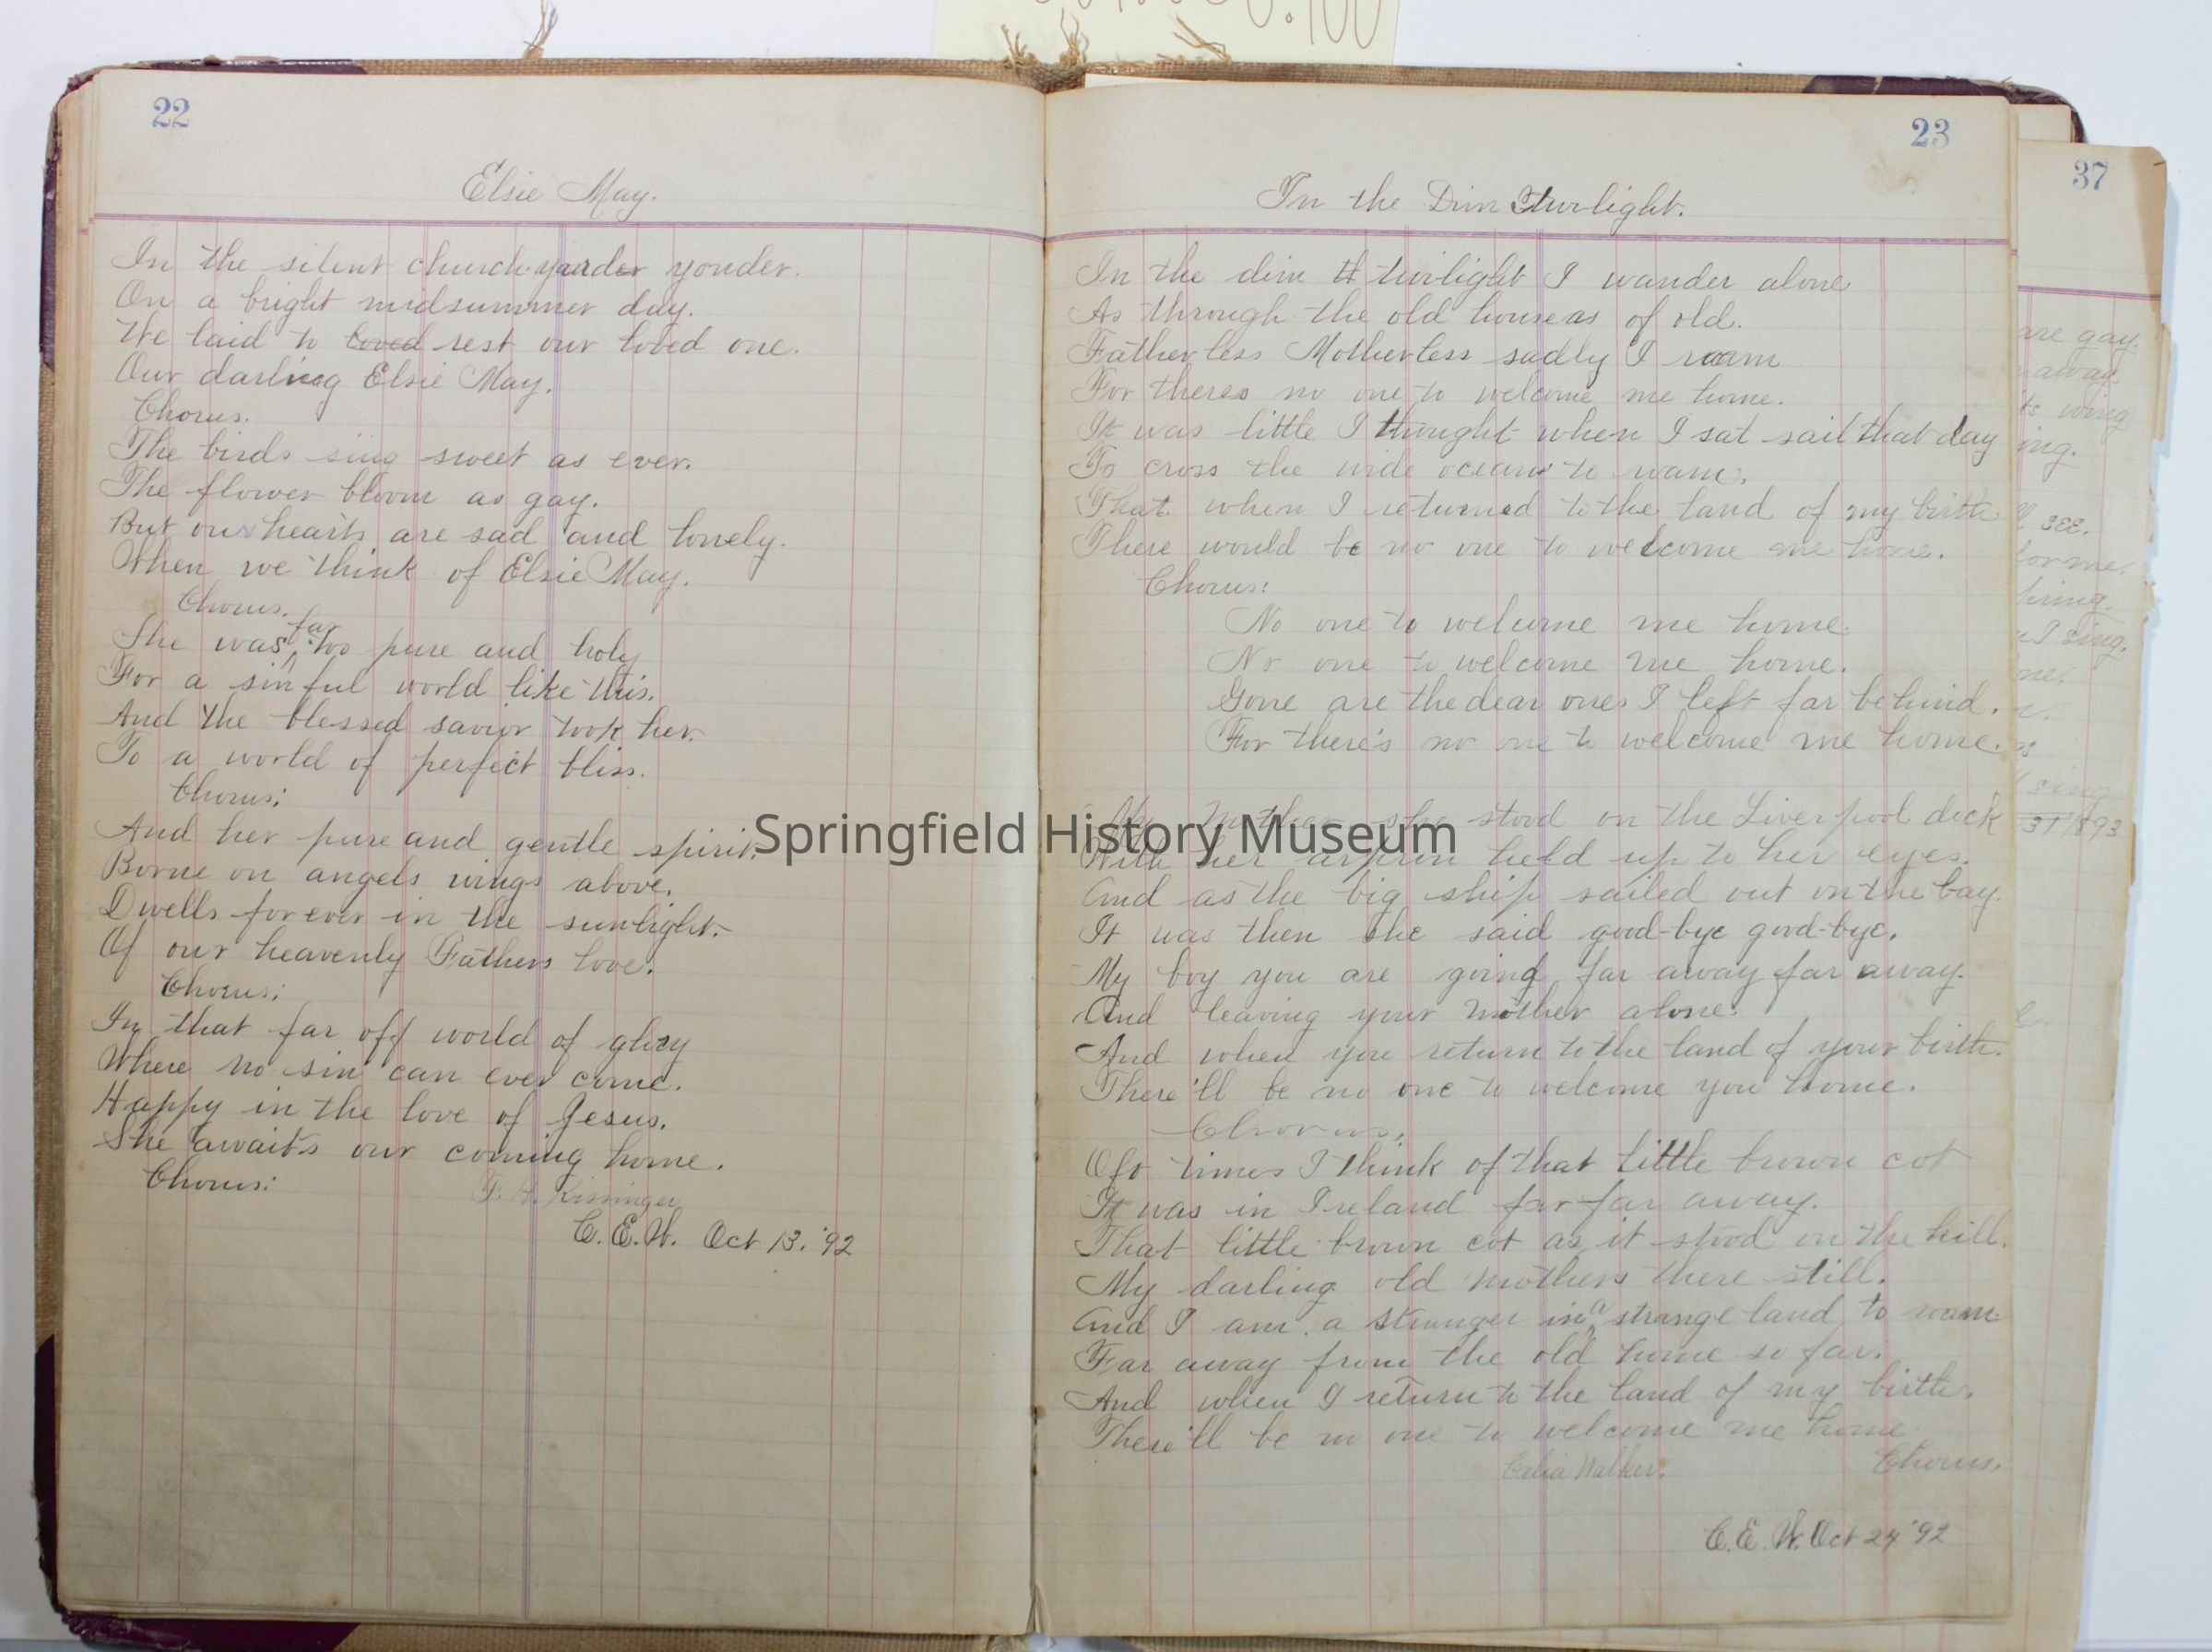 22
Elsie May.
In the silent church yarder yonder.
On a bright midsummer day.
We laid to loved rest our loved one.
Our darling Elsie May.
Chorus.
The birds sing sweet as ever.
The flower bloom as gay.
But our hearts are sad and lonely.
When we think of Elsie May.
Chorus.
She was far too pure and holy
For a sinful world like this.
And the blessed savior took her.
To a world of perfect bliss.
Chorus:
And her pure and gentle spirit.
Borne on angels wings above.
Dwells forever in the sunlight.
Of our heavenly Fathers love.
Chorus:
In that far off world of glory
Where no sin can ever come.
Happy in the love of Jesus.
She awaits our coming home.
Chorus:
F. H. Kissinger
C. E. W. Oct 13. '92
23
In the Dim Twilight.
In the dim tt twilight I wander alone
As through the old house as of old.
Fatherless Motherless sadly I roam
For theres no one to welcome me home.
It was little I thought when I sat sail that day
To cross the wide ocean to roam.
That when I returned to the land of my birth
There would be no one to welcome me home.
Chorus:
No one to welcome me home.
No one to welcome me home.
Gone are the dear ones I left far behind.
For there's no one to welcome me home.
My Mother she stood on the Liverpool dock
With her arpron held up to her eyes.
And as the big ship sailed out on the bay.
It was then she said good-bye good-bye.
My boy you are going far away far away.
And leaving your Mother alone.
And when you return to the land of your birth.
There'll be no one to welcome you home.
Chorus.
Oft times I think of that little brown cot
It was in Ireland far far away.
That little brown cot as it stood on the hill.
My darling old Mothers there still.
And I am a stranger in a strange land to roam
Far away from the old home so far.
And when I return to the land of my birth.
There'll be no one to welcome me home
Chorus.
Celia Walker.
C. E. W. Oct 24 '92
37
are gay.
away.
its wing
ing.
see.
for me.
I sing.
31 1893
Springfield History Museum